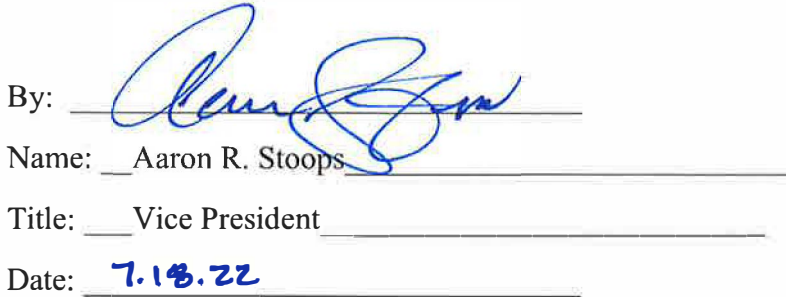 By: Aaron Stoops
Name: Aaron R. Stoops
Title: Vice President
Date: 7.18.22